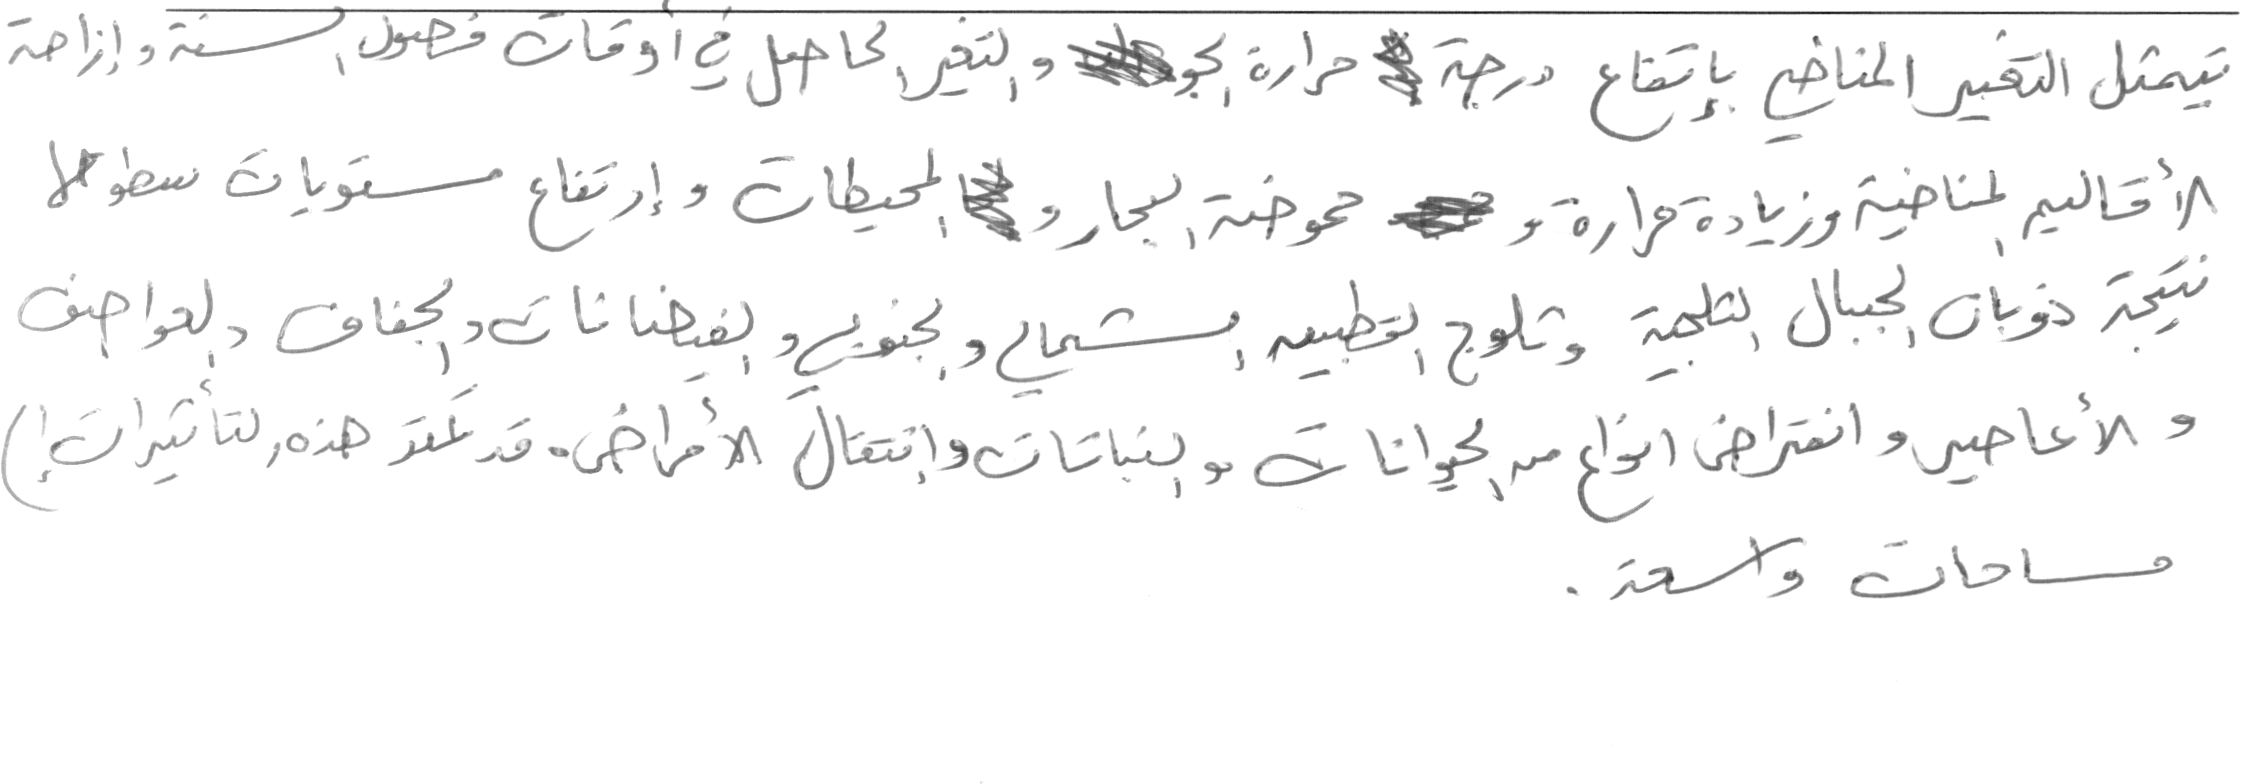 يتمثل التغير المناخي بإرتفاع درجة حرارة الجو والتغير الحاصل في أوقات فصول السنة وإزاحة
الأقاليم المناخية وزيادة حرارة و حموضة البحار و المحيطات وإرتفاع مستويات سطوحها
نتيجة ذوبان الجبال الثلجية وثلوج القطبين الشمالي والجنوبي والفيضانات والجفاف والعواصف
و الأعاصير وانقراض انواع من الحيوانات والنباتات وإنتقال الأمراض. قد تمتد هذه التأثيرات إلى
مساحات واسعة .